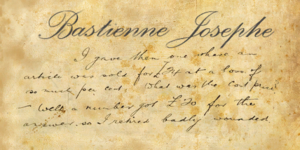 Bastienne Josephe
I gave them one where an
article was sold for £ at a loss of
so much per cent. What was the cost price
— well, a number got £ for the
answer so I retired badly wounded